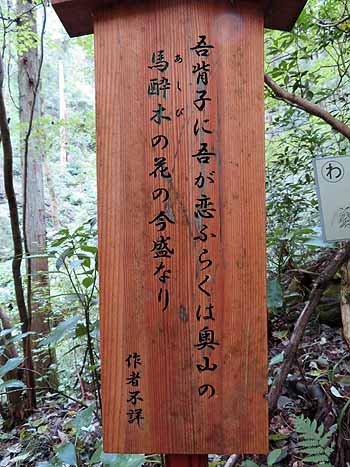 吾背子に吾が恋ふらくは奥山の
馬酔木の花の今盛なり
あしび
作者不詳
わ